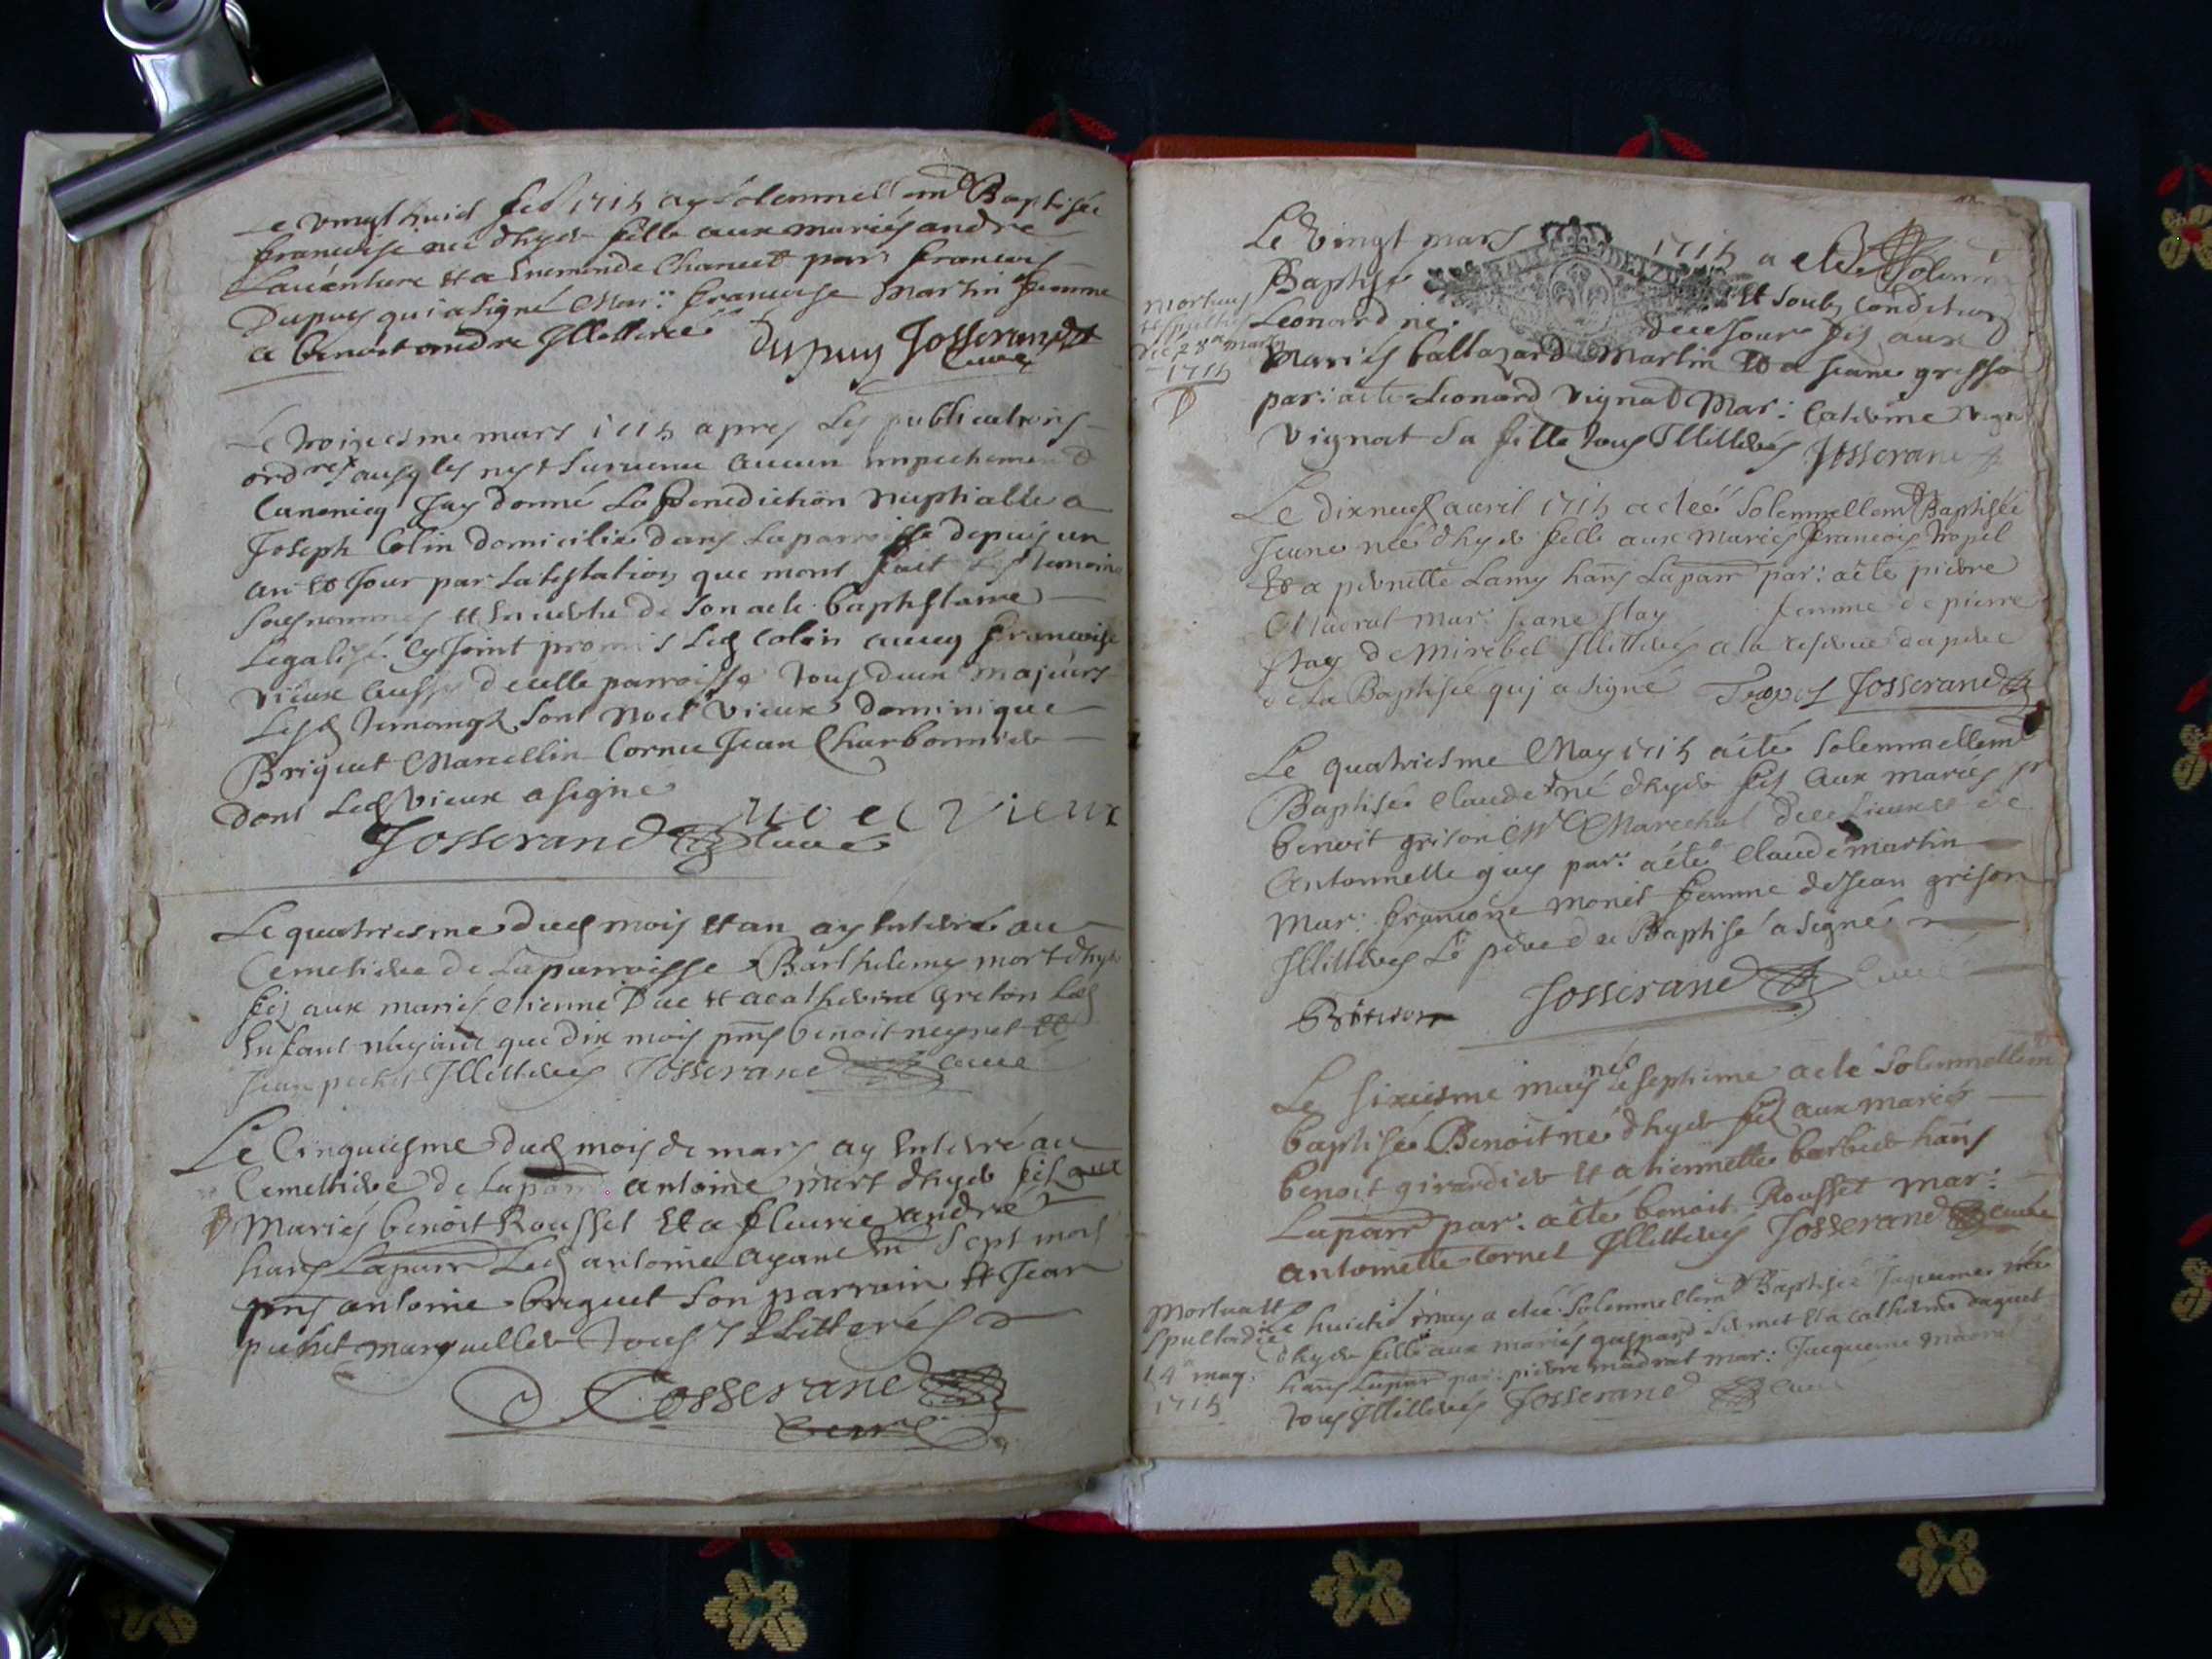 Le vingt huict feb 1715 ay solemnellemt Baptisée
francoise née d'hyer fille aux mariés andre
Lauenture et a Enemonde Chancet par: francois
Dupuy qui a signé Mar: francoise Martin femme
a benoit andre Illitterée
dupuy Josserand
curé
Le troisiesme mars 1715 apres les publications
ordres ausqles nest suruenu aucun empechement
Canonicq Jay donné La Benediction Nuptialle a
Joseph Colin domicilié dans Laparroisse depuis un
an et Jour par Latestation que mont fait les temoins
sousnommes et en uertu de son acte baptistaire
Legalisé cy Joint promis Led Colin auecq francoise
vieux aussy dicelle parroisse tous deux majeurs
Lesd temoings sont Noel vieux dominique
Briquet Marcellin Cornu Jean Charbonnier
dont Led vieux a signé
noel vieux
Josserand curé
Le quatriesme dud mois et an ay enterré au
Cemetiere de Laparroisse Barthelemy mort d'hyer
fis aux mariés etienne Duc et a catherine Greton Led
Enfant n'ayant que dix mois pnts benoit neyret et
Jean pechet Illitterés Josserand curé
Le Cinquiesme dud mois de mars ay Enterré au
Cemettiere de Laparr antoine mort d'hyer fis aux
Mariés benoit Roussel et a fleurie andré
hans Laparr Led antoine ayant sept mois
pnts antoine briquet son parrain et Jean
pechet marguellier tous Illitterés
Josserand
Curé
Le vingt mars 1715 a eté Solem
Baptisé et soubs condition
Leonard né de ce Jour fis aux
mortuus
1715
Mariés baltazard Martin et a Jeane
par: a eté Leonard vignat Mar: Caterine
vignat sa fille tous Illitterés Josserand
Le dixneuf auril 1715 a eteé Solemnellemt Baptisée
Jeane née d'hyer fille aux Mariés francois Tropel
et a pernette Lamy hans Laparr par: a eté pierre
Madrat mar: Jeane stay femme de pierre
stay de Mirebel Illitterés a la reserue du pere
de la Baptisée qui a signé Tropel Josserand
Le quatriesme May 1715 a eté solemnellemt
Baptisé Claude né d'hyer fis aux mariés sr
benoit grison Mr Marechal de ce lieu et de
Antonnette guy par: a eté Claude martin
Mar: francoise monet femme de Jean grison
Illitterés Le pere du Baptisé a signé
Grison Josserand curé
Le sixiesme may né Le septime a eté solemnellem
baptisé Benoit né d'hyer fis aux mariés
benoit girardier et a tiennette barbier hans
Laparr par: a eté benoit Rousset mar:
antoinette Cornet Illitterés Josserand curé
mortua et
spulta die
14a may
1715
Le huictie may a eteé Solemnellemt Baptisée Jaqueme née
d'hyer fille aux mariés gaspard et a catherine daguet
hans Laparr par: pierre madrat mar: Jacqueme madrat
tous Illitterés Josserand curé